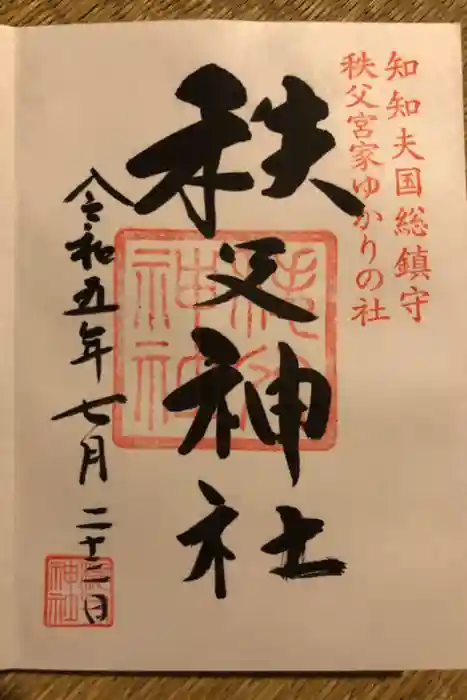 知知夫国総鎮守
秩父宮家ゆかりの社
秩父神社
秩父
神社
令和五年七月二十二日
秩父
神社